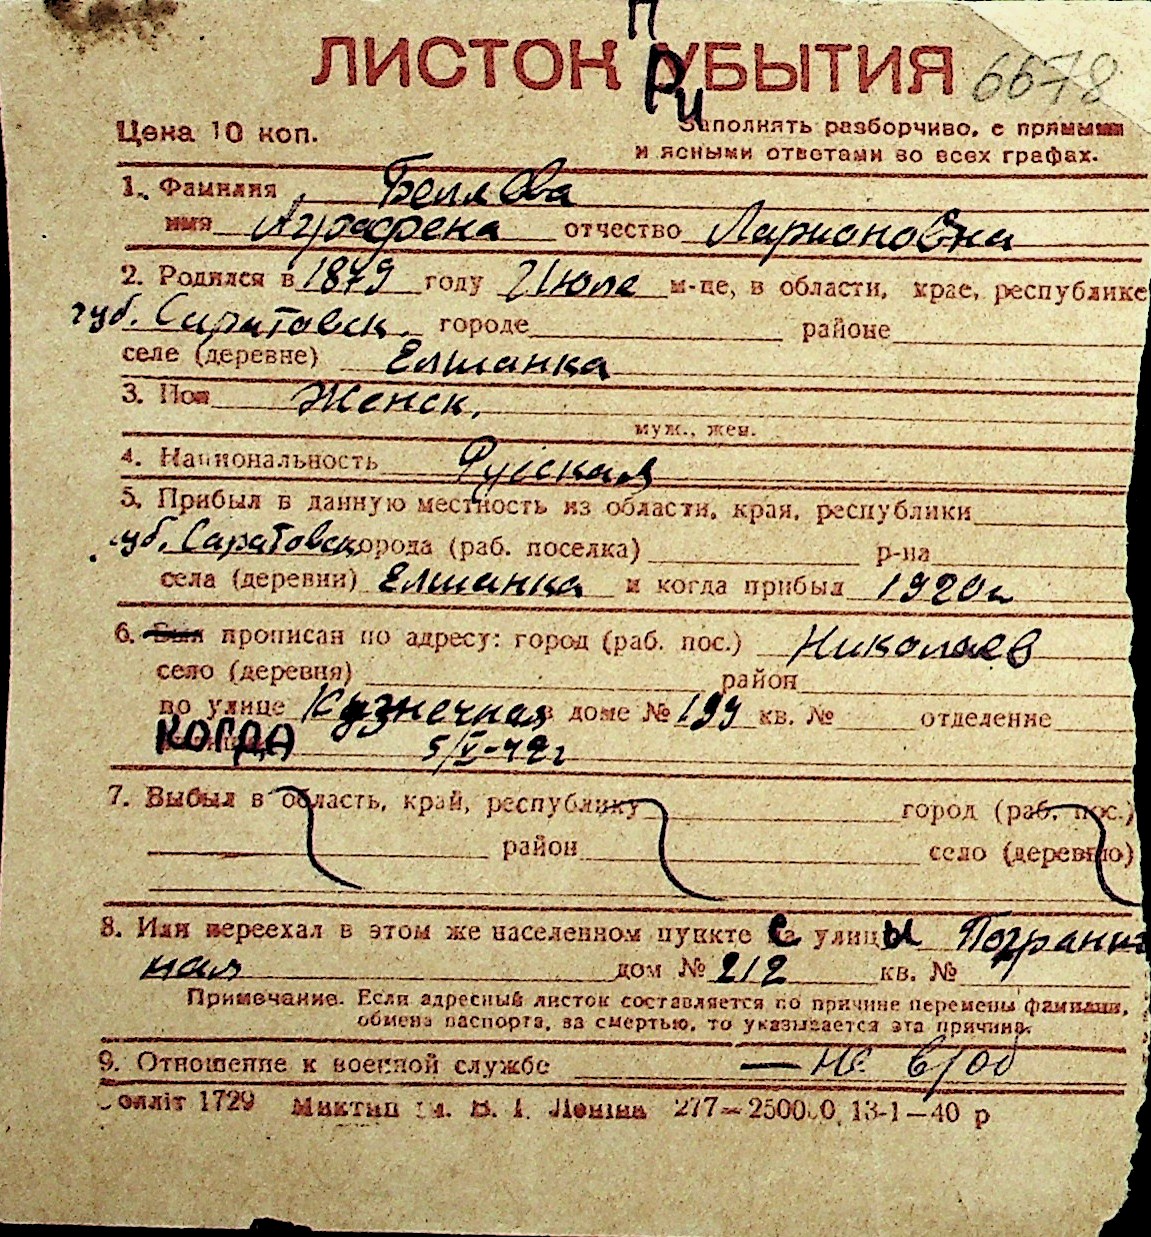 ЛИСТОК УБЫТИЯ
При
6678
Цена 10 коп.
Заполнять разборчиво, с прямыми
и ясными ответами во всех графах.
1. Фамилия Беплова
имя Аграфена отчество Ларионовна
2. Родился в 1879 году Июле м-це, в области, крае, республике
губ. Саратовск. городе районе
селе (деревне) Елшанка
3. Пол Женск.
муж., жен.
4. Национальность Русская
5. Прибыл в данную местность из области, края, республики
губ. Саратовск города (раб. поселка) р-на
села (деревни) Елшанка и когда прибыл 1920г
6. Был прописан по адресу: город (раб. пос.) Николаев
село (деревня) район
по улице Кузнечная в доме № 199 кв. № отделение
КОГДА 5/V-42г
7. Выбыл в область, край, республику город (раб. пос.)
район село (деревню)
8. Или переехал в этом же населенном пункте с улицы Погранич
ная дом № 212 кв. №
Примечание. Если адресный листок составляется по причине перемены фамилии,
обмена паспорта, за смертью, то указывается эта причина.
9. Отношение к военной службе — не в/об
олліт 1729 Миктип ім. В. І. Леніна 277—250000 13-1—40 р